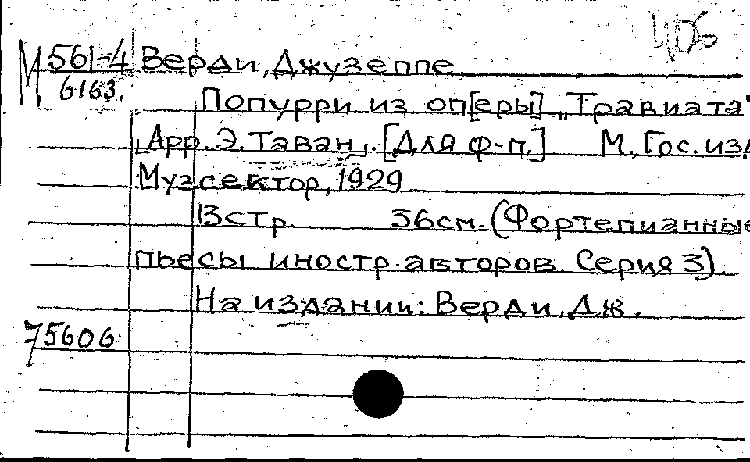 405
М 561-4 Верди, Джузеппе
6163.
Попурри из оп[еры] „Травиата"
Арр. Э. Таван. [Для ф-п.] М., Гос. изд
Музсектор, 1929
13 стр. 36 см. (Фортепианные
пьесы иностр. авторов. Серия 3)
На издании: Верди, Дж.
75606